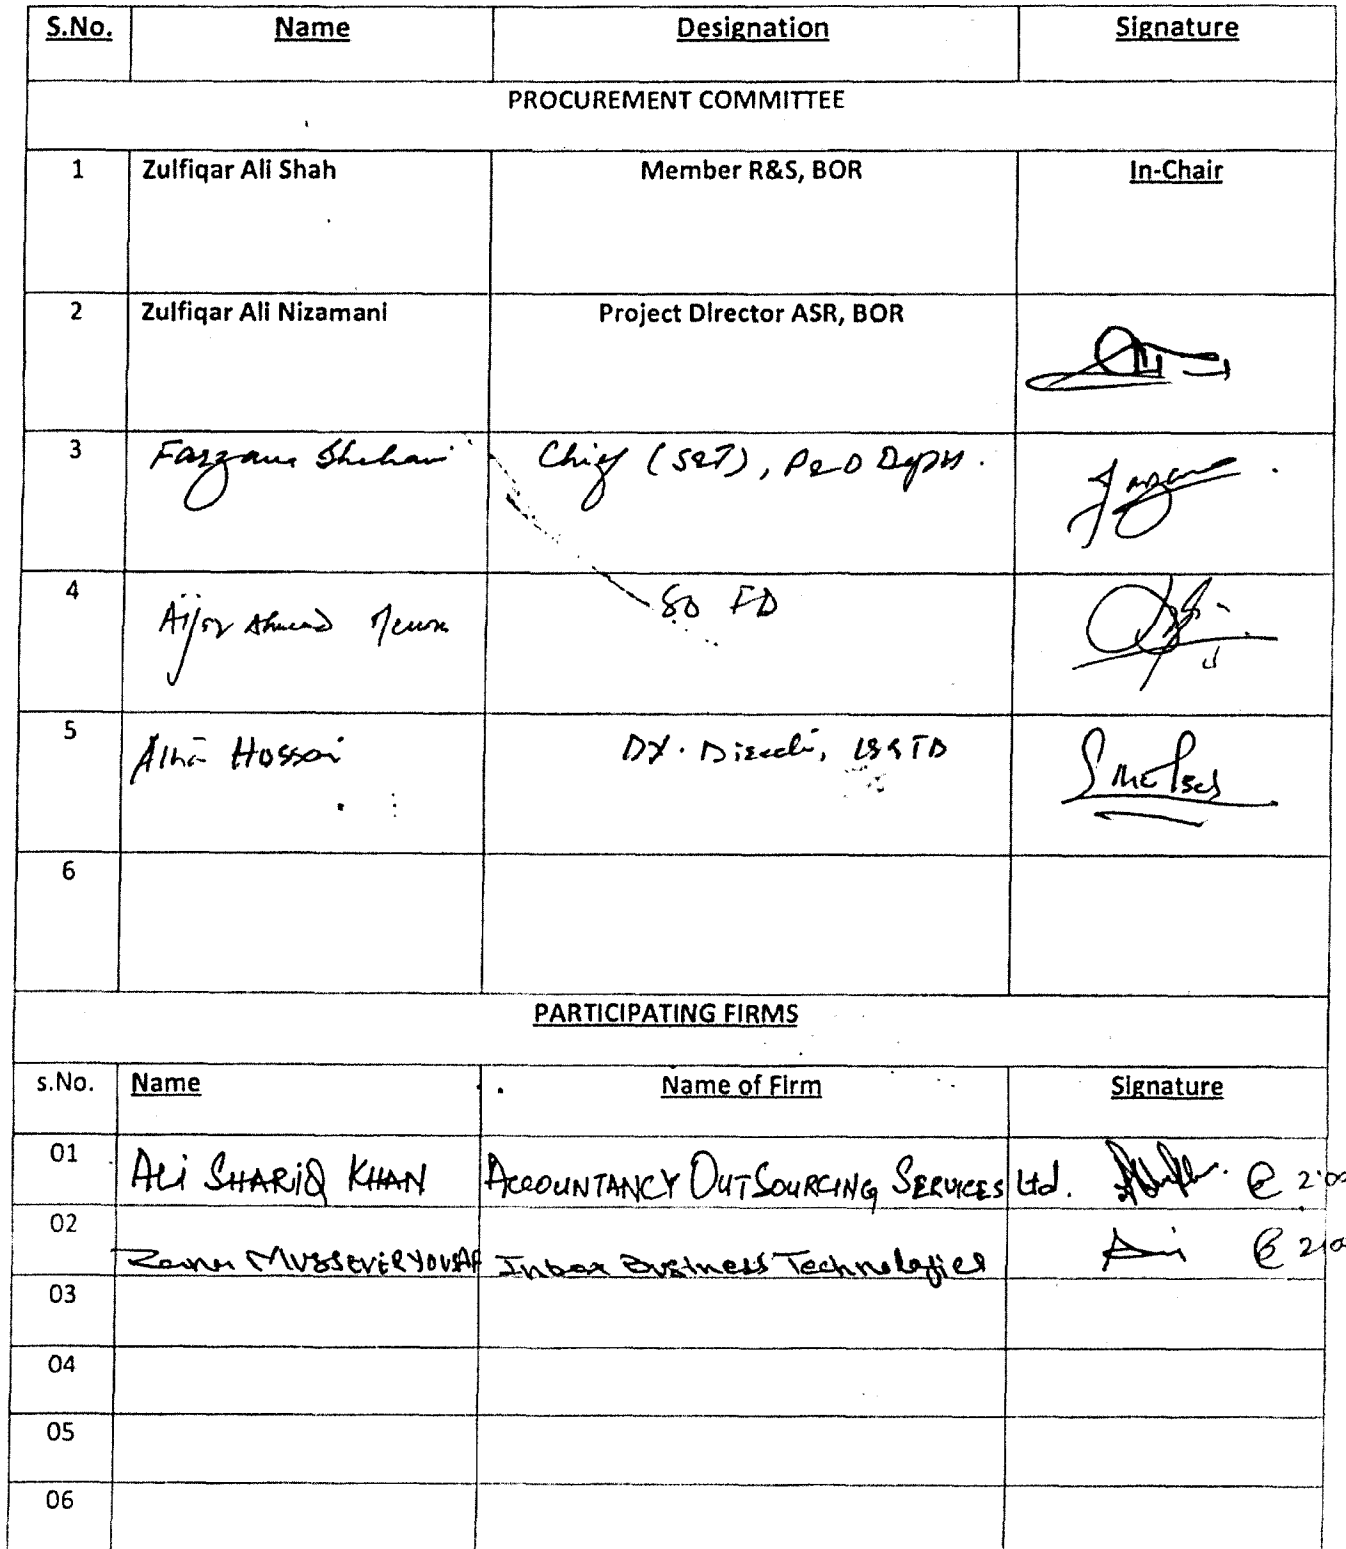 S.No. Name Designation Signature
PROCUREMENT COMMITTEE
1 Zulfiqar Ali Shah Member R&S, BOR In-Chair
2 Zulfiqar Ali Nizamani Project Director ASR, BOR
3 Farzana Chief (S&T), P&D Deptt.
4 Aijaz Ahmed Memon SO FD
5 Hussain Dy. Director,
6
PARTICIPATING FIRMS
s.No. Name Name of Firm Signature
01 ALi SHARiQ KHAN ACCOUNTANCY OUTSOURCING SERVICES Ltd. @ 2:00
02 YOUSAF Inbox Business Technologies @ 2:00
03
04
05
06